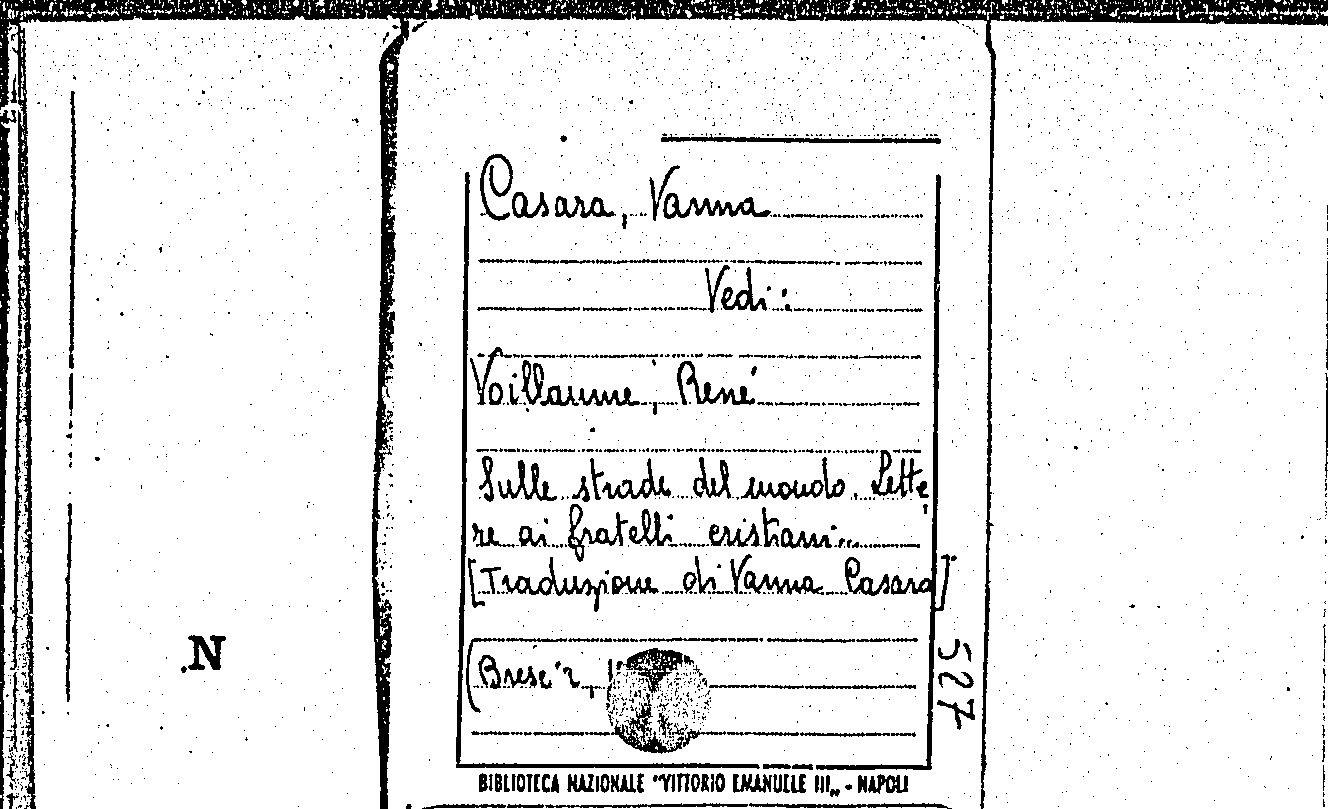 Casara, Vanna
Vedi:
Voillaume, René
Sulle strade del mondo. Lette
re ai fratelli cristiani...
[Traduzione di Vanna Casara]
(Brescia,
527
N
BIBLIOTECA NAZIONALE "VITTORIO EMANUELE III„ - NAPOLI